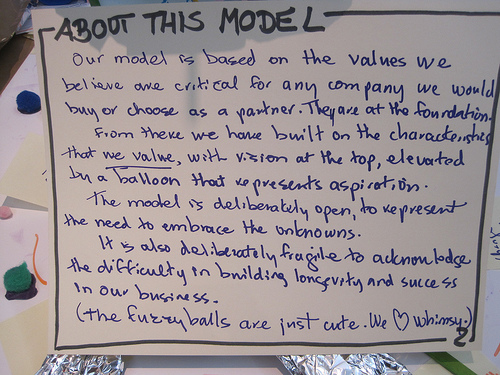 ABOUT THIS MODEL
Our model is based on the values we
believe are critical for any company we would
buy or choose as a partner. They are at the foundation.
From there we have built on the characteristics
that we value, with vision at the top, elevated
by a balloon that represents aspiration.
The model is deliberately open, to represent
the need to embrace the unknowns.
It is also deliberately fragile to acknowledge
the difficulty in building longevity and success
in our business.
(the fuzzyballs are just cute. We ♡ whimsy.)
2